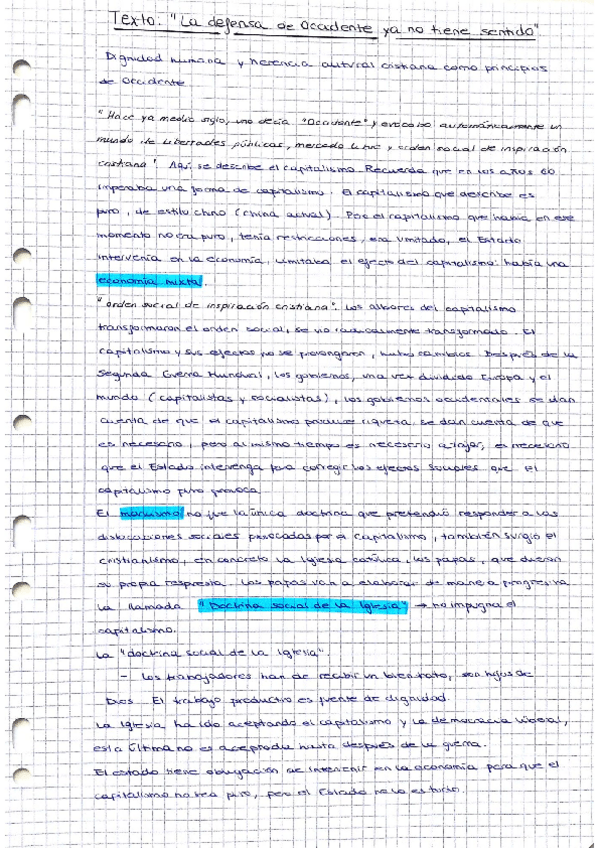 Texto: "La defensa de Occidente ya no tiene sentido"
Dignidad humana y herencia cultural cristiana como principios
de Occidente
"Hace ya medio siglo, uno decía "Occidente" y evocaba automáticamente un
mundo de libertades públicas, mercado libre y orden social de inspiración
cristiana". Aquí se describe el capitalismo. Recuerda que en los años 60
imperaba una forma de capitalismo. El capitalismo que describe es
puro, de estilo chino (China actual). Por el capitalismo que había en ese
momento no era puro, tenía restricciones, era limitado, el Estado
intervenía en la economía, limitaba el efecto del capitalismo: había una
economía mixta.
"orden social de inspiración cristiana". Los albores del capitalismo
transformaron el orden social, se vio radicalmente transformado. El
capitalismo y sus efectos no se prolongaron, hubo cambios. Después de la
Segunda Guerra Mundial, los gobiernos, una vez dividido Europa y el
mundo (capitalistas y socialistas), los gobiernos occidentales se dan
cuenta de que el capitalismo produce riqueza, se dan cuenta de que
es necesario, pero al mismo tiempo es necesario atajar, es necesario
que el Estado intervenga para corregir los efectos sociales que el
capitalismo puro provoca.
El marxismo no fue la única doctrina que pretendió responder a las
dislocaciones sociales provocadas por el capitalismo, también surgió el
cristianismo, en concreto la Iglesia católica, los papas, que dieron
su propia respuesta. Los papas van a elaborar de manera progresiva
la llamada "Doctrina social de la Iglesia" → no impugna el
capitalismo.
La "doctrina social de la Iglesia".
- Los trabajadores han de recibir un buen trato, son hijos de
Dios. El trabajo productivo es fuente de dignidad.
La Iglesia ha ido aceptando el capitalismo y la democracia liberal,
esta última no es aceptada hasta después de la guerra.
El estado tiene obligación de intervenir en la economía para que el
capitalismo no sea puro, pero el Estado no lo es todo.